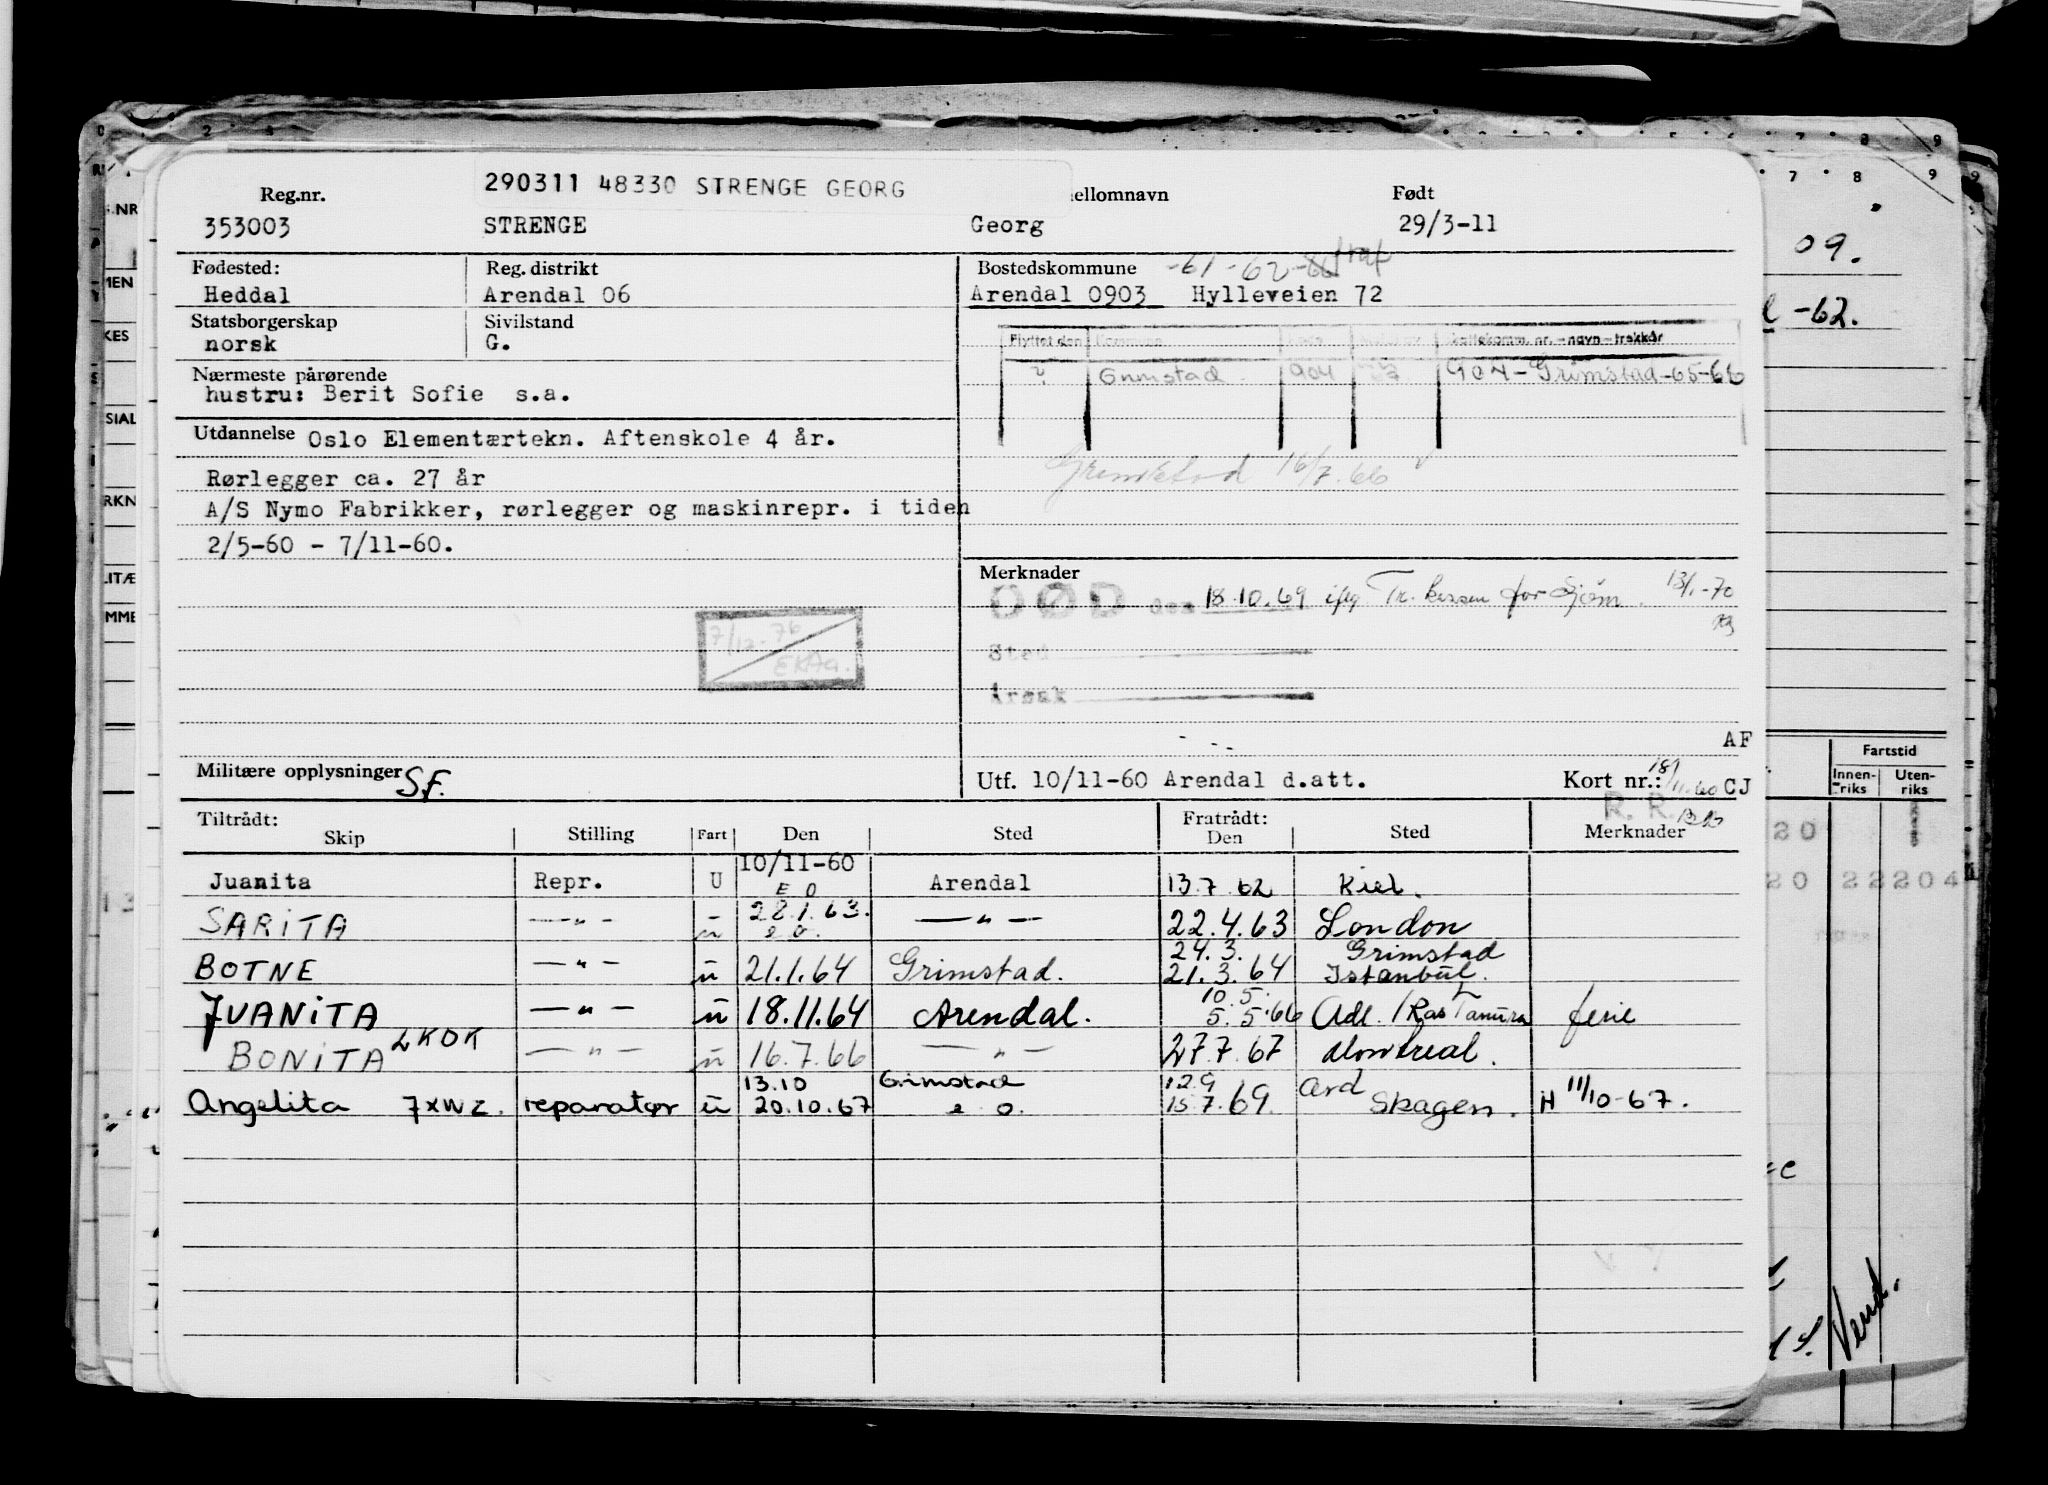 290311 48330 STRENGE GEORG
Reg.nr. ellomnavn Født
353003 STRENGE Georg 29/3-11
Fødested: Reg. distrikt Bostedskommune -61-62-66
Heddal Arendal 06 Arendal 0903 Hylleveien 72
Statsborgerskap Sivilstand
norsk G.
Flyttet den skattekomm. nr. - navn - trekkår
? Grimstad 904 904 - Grimstad -65-66
Nærmeste pårørende
hustru: Berit Sofie s.a.
Utdannelse Oslo Elementærtekn. Aftenskole 4 år.
Grimstad 16/7.66
Rørlegger ca. 27 år
A/S Nymo Fabrikker, rørlegger og maskinrepr. i tiden
2/5-60 - 7/11-60.
Merknader
DØD den 18.10.69 iflg Tr. kassen for Sjøm. 13/1-70
Sted
Årsak
7/12-76
EKAa.
AF
Militære opplysninger S.F.
Utf. 10/11-60 Arendal d.att. Kort nr.: 18/11.60 CJ
R. R.
Tiltrådt: Fratrådt:
Skip Stilling Fart Den Sted Den Sted Merknader
Juanita Repr. U 10/11-60 Arendal 13.7.62 Kiel.
E O
SARITA —"— - 28.1.63. —"— 22.4.63 London
u e o.
24.3. Grimstad
BOTNE —"— u 21.1.64 Grimstad. 21.3.64 Istanbul.
10.5.
JUANITA —"— u 18.11.64 Arendal. 5.5.66 Adl. / Ras Tanura ferie
BONITA LKOK —"— u 16.7.66 —"— 27.7.67 Montreal.
13.10 Grimstad 12.9 Ard
Angelita JXWZ reparatør u 20.10.67 e o. 15.7.69. Skagen. H 11/10-67.
09.
-62.
Fartstid
Innen-riks Uten-riks
20
20 22 204
Vend.